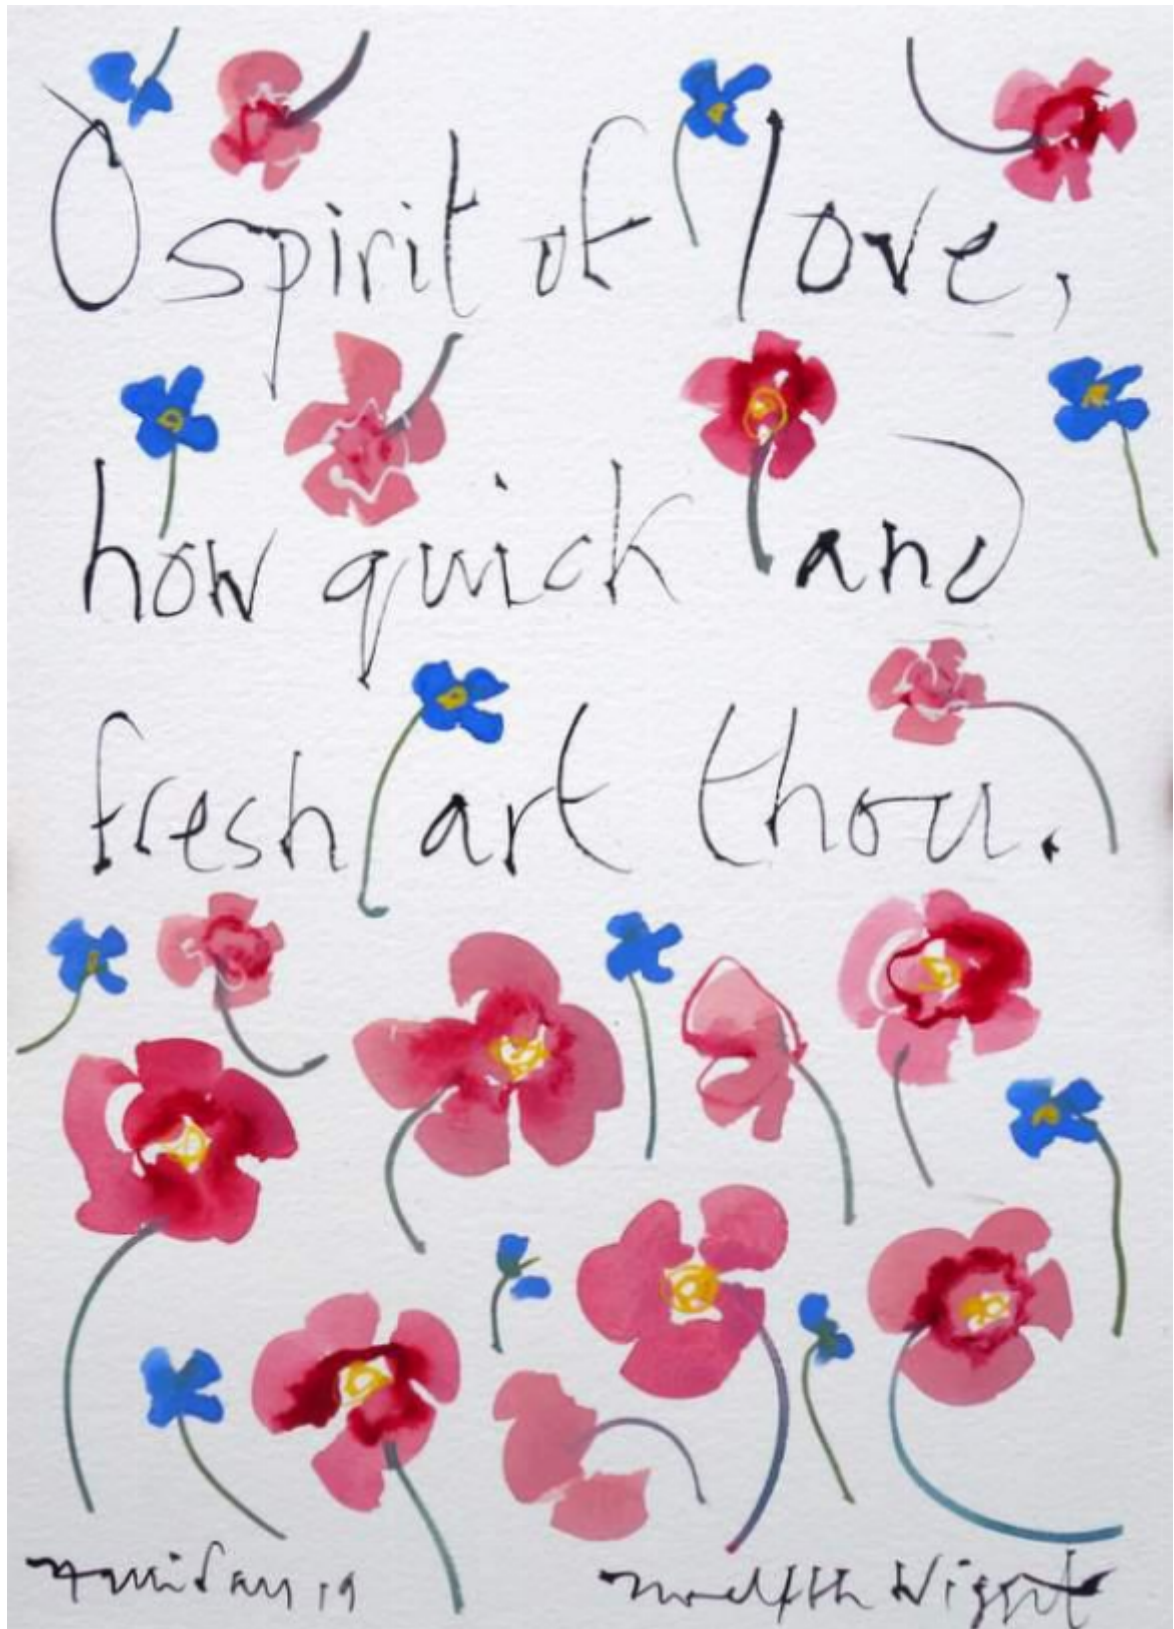 O spirit of love,
how quick and
fresh art thou.
19
Twelfth Night